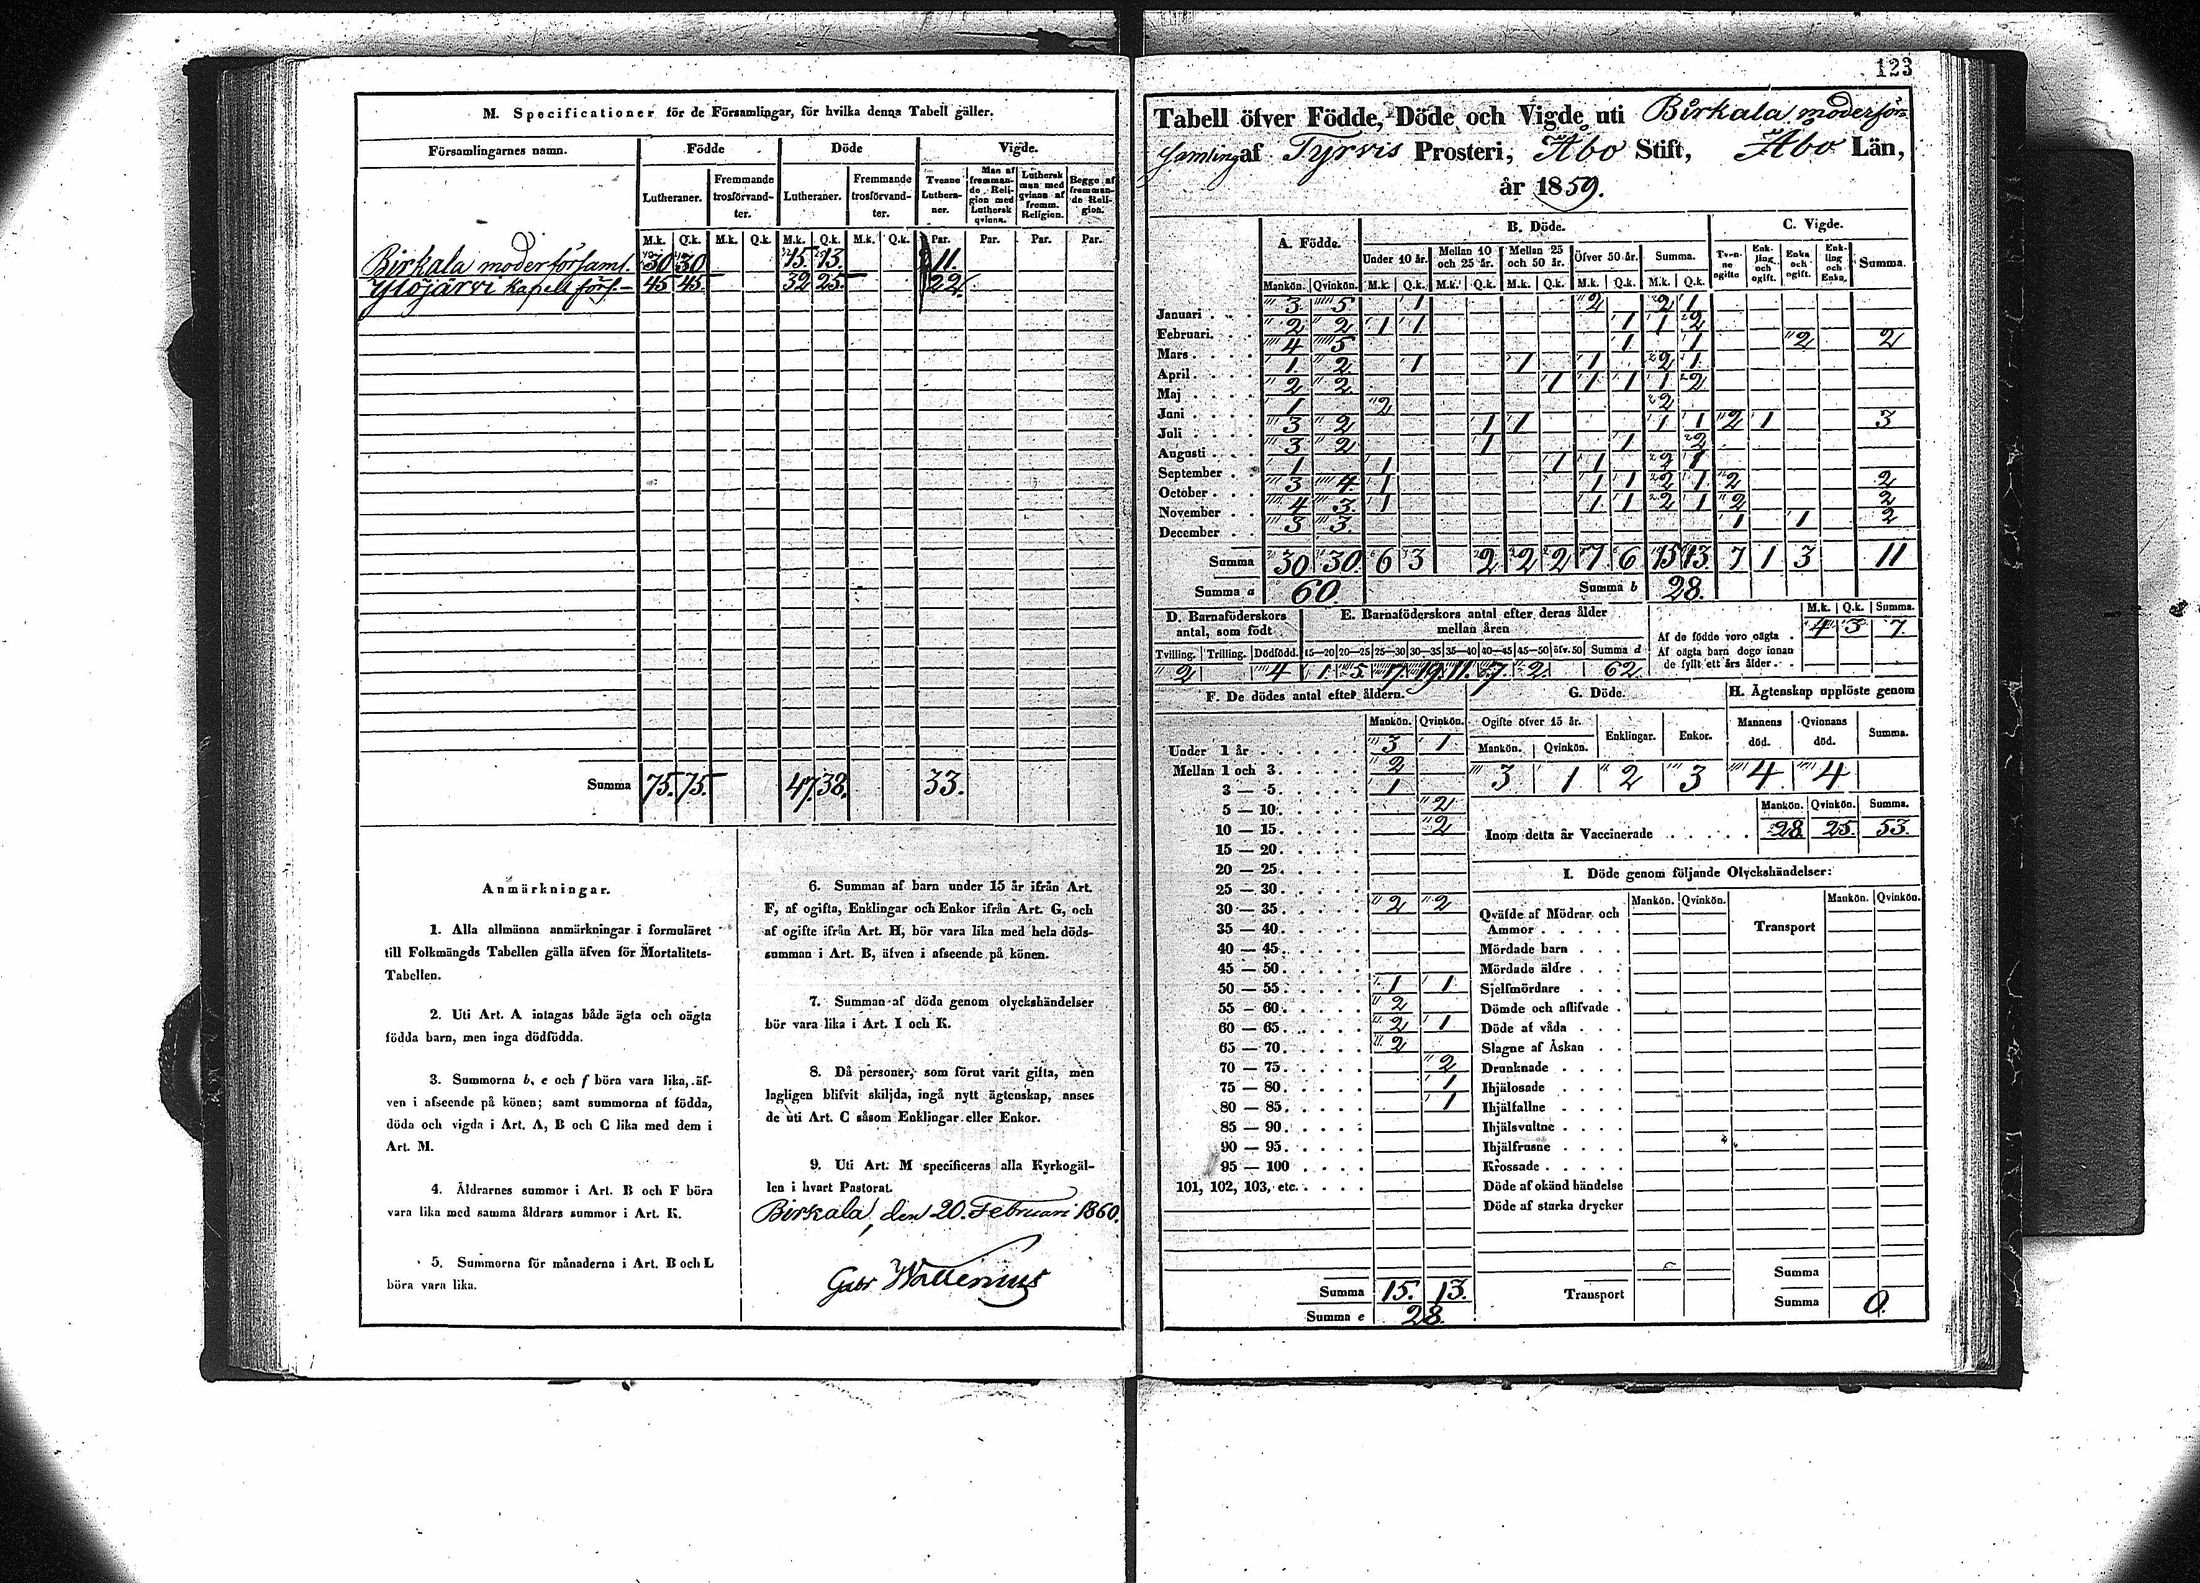 M. Specificationer för de Församlingar, för hvilka denna Tabell gäller.
Församlingarnes namn. Födde Döde Vigde.
Lutheraner. Fremmande trosförvandter. Lutheraner. Fremmande trosförvandter. Tvenne Lutheraner. Man af fremmande Religion med Luthersk qvinna. Luthersk man med qvinna af fremm. Religion. Begge af fremmande Religion.
M.k. Q.k. M.k. Q.k. M.k. Q.k. M.k. Q.k. Par. Par. Par. Par.
Birkala moderförsaml. 30 30 15. 13. 11.
Ylöjärvi kapellförs. 45 45 32 25 22.
Summa 75. 75. 47. 38. 33.
Anmärkningar.
1. Alla allmänna anmärkningar i formuläret
till Folkmängds Tabellen gälla äfven för Mortalitets-
Tabellen.
2. Uti Art. A intagas både ägta och oägta
födda barn, men inga dödfödda.
3. Summorna b, e och f böra vara lika, äf-
ven i afseende på könen; samt summorna af födda,
döda och vigda i Art. A, B och C lika med dem i
Art. M.
4. Åldrarnes summor i Art. B och F böra
vara lika med samma åldrars summor i Art. K.
5. Summorna för månaderna i Art. B och L
böra vara lika.
6. Summan af barn under 15 år ifrån Art.
F, af ogifta, Enklingar och Enkor ifrån Art. G, och
af ogifte ifrån Art. H, bör vara lika med hela döds-
summan i Art. B, äfven i afseende på könen.
7. Summan af döda genom olyckshändelser
bör vara lika i Art. I och K.
8. Då personer, som förut varit gifta, men
lagligen blifvit skiljda, ingå nytt ägtenskap, anses
de uti Art. C såsom Enklingar eller Enkor.
9. Uti Art. M specificeras alla Kyrkogäl-
len i hvart Pastorat.
Birkala, den 20. Februari 1860.
Gabr Wallenius
123
Tabell öfver Födde, Döde och Vigde uti Birkala moderför-
samling af Tyrvis Prosteri, Åbo Stift, Åbo Län,
år 1859.
A. Födde. B. Döde. C. Vigde.
Under 10 år. Mellan 10 och 25 år. Mellan 25 och 50 år. Öfver 50 år. Summa. Tvenne ogifte Enkling och ogift. Enka och ogift. Enkling och Enka. Summa.
Mankön. Qvinkön. M.k. Q.k. M.k. Q.k. M.k. Q.k. M.k. Q.k. M.k. Q.k.
Januari 3 5 1 2 2 1
Februari 2 2 1 1 1 1 2
Mars 4 5 1 1 2 2
April 1 2 1 1 1 2 1
Maj 2 2 1 1 1 1 2
Juni 1 2 2
Juli 3 2 1 1 1 1 2 1 3
Augusti 3 2 1 1 2
September 1 1 1 1 2 1
October 3 4 1 1 1 2 1 2 2
November 4 3 1 1 1 2 1 2 2
December 3 3 1 1 2
Summa 30 30 6 3 2 2 2 7 6 15 13. 7 1 3 11
Summa a 60. Summa b 28.
D. Barnaföderskors antal, som födt E. Barnaföderskors antal efter deras ålder mellan åren
Tvilling. Trilling. Dödfödd. 15—20 20—25 25—30 30—35 35—40 40—45 45—50 öfv. 50 Summa d
2 4 1 5 17 19 11. 7 2. 62.
M.k. Q.k. Summa.
Af de födde voro oägta 4 3 7.
Af oägta barn dogo innan
de fyllt ett års ålder
F. De dödes antal efter åldern.
Mankön. Qvinkön.
Under 1 år 3 1
Mellan 1 och 3 2
3 — 5 1
5 — 10 2
10 — 15 2
15 — 20
20 — 25
25 — 30
30 — 35 2 2
35 — 40
40 — 45
45 — 50
50 — 55 1 1
55 — 60 2
60 — 65 2 1
65 — 70 2
70 — 75 2
75 — 80 1
80 — 85 1
85 — 90
90 — 95
95 — 100
101, 102, 103, etc.
Summa 15. 13.
Summa e 28.
G. Döde. H. Ägtenskap upplöste genom
Ogifte öfver 15 år. Enklingar. Enkor. Mannens död. Qvinnans död. Summa.
Mankön. Qvinkön.
3 1 2 3 4 4
Mankön. Qvinkön. Summa.
Inom detta år Vaccinerade 28 25. 53.
I. Döde genom följande Olyckshändelser:
Mankön. Qvinkön. Mankön. Qvinkön.
Qväfde af Mödrar och
Ammor Transport
Mördade barn
Mördade äldre
Sjelfmördare
Dömde och aflifvade
Döde af våda
Slagne af Åskan
Drunknade
Ihjälosade
Ihjälfallne
Ihjälsvultne
Ihjälfrusne
Krossade
Döde af okänd händelse
Döde af starka drycker
Summa
Transport Summa 0.